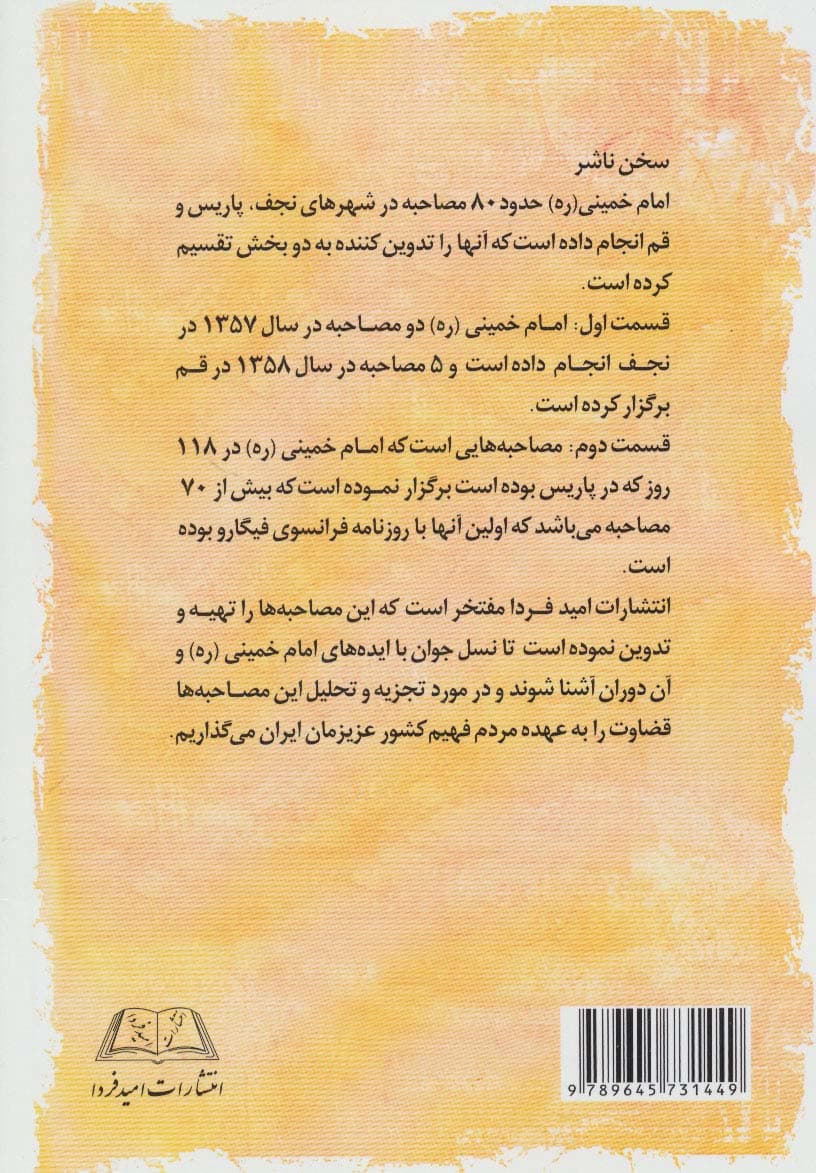 سخن ناشر
امام خمینی(ره) حدود ۸۰ مصاحبه در شهرهای نجف، پاریس و
قم انجام داده است که آنها را تدوین کننده به دو بخش تقسیم
کرده است.
قسمت اول: امام خمینی (ره) دو مصاحبه در سال ۱۳۵۷ در
نجف انجام داده است و ۵ مصاحبه در سال ۱۳۵۸ در قم
برگزار کرده است.
قسمت دوم: مصاحبه‌هایی است که امام خمینی (ره) در ۱۱۸
روز که در پاریس بوده است برگزار نموده است که بیش از ۷۰
مصاحبه می‌باشد که اولین آنها با روزنامه فرانسوی فیگارو بوده
است.
انتشارات امید فردا مفتخر است که این مصاحبه‌ها را تهیه و
تدوین نموده است تا نسل جوان با ایده‌های امام خمینی (ره) و
آن دوران آشنا شوند و در مورد تجزیه و تحلیل این مصاحبه‌ها
قضاوت را به عهده مردم فهیم کشور عزیزمان ایران می‌گذاریم.
انتشارات
امید فردا
انتشارات امید فردا
9 789645 731449